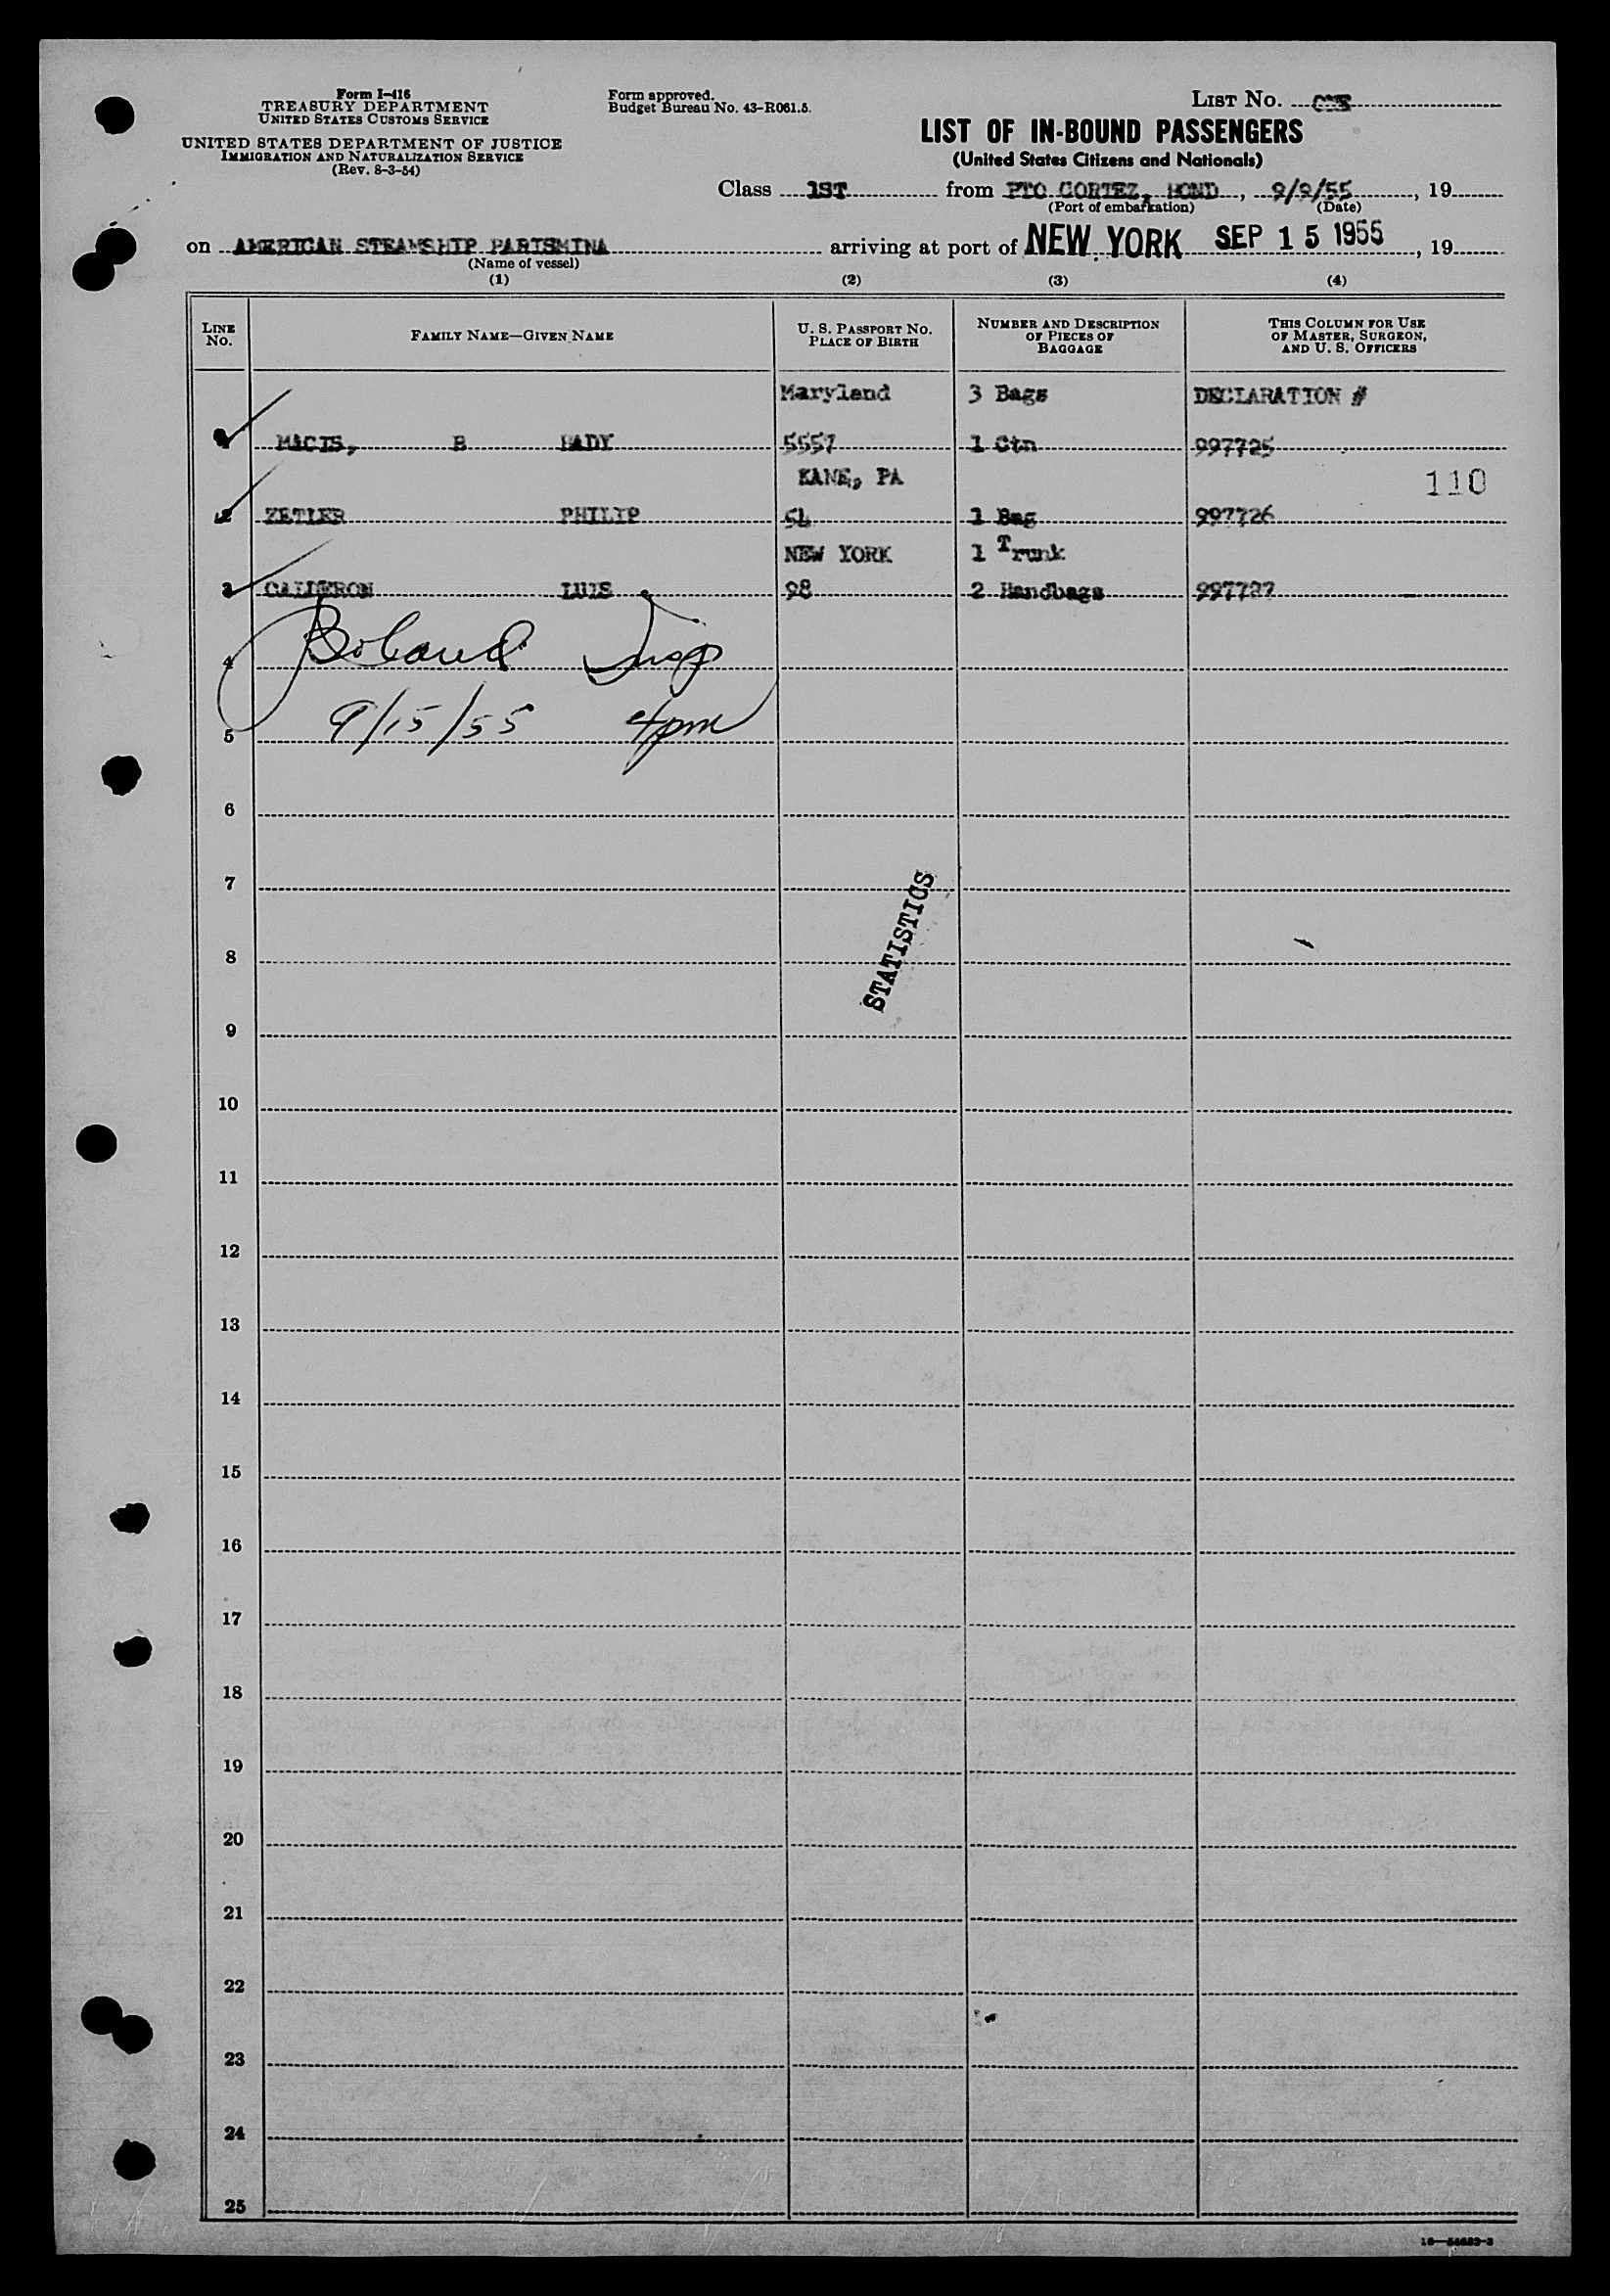 Form I-416
TREASURY DEPARTMENT
UNITED STATES CUSTOMS SERVICE
UNITED STATES DEPARTMENT OF JUSTICE
IMMIGRATION AND NATURALIZATION SERVICE
(Rev. 8-3-54)
Form approved.
Budget Bureau No. 43-R061.5.
LIST NO. ONE
LIST OF IN-BOUND PASSENGERS
(United States Citizens and Nationals)
Class 1ST from PTO CORTEZ, HOND, 9/9/55, 19
(Port of embarkation) (Date)
on AMERICAN STEAMSHIP PARISMINA arriving at port of NEW YORK SEP 15 1955, 19
(Name of vessel)
(1) (2) (3) (4)
LINE NO. FAMILY NAME—GIVEN NAME U. S. PASSPORT NO. PLACE OF BIRTH NUMBER AND DESCRIPTION OF PIECES OF BAGGAGE THIS COLUMN FOR USE OF MASTER, SURGEON, AND U. S. OFFICERS
Maryland 3 Bags DECLARATION #
1 B 5557 1 Ctn 997725
KANE, PA 110
2 ZETLER PHILIP 54 1 Bag 997726
NEW YORK 1 Trunk
3 CALDERON LUIS 98 2 Handbags 997727
4 Boland Insp
5 9/15/55 4pm
6
7
STATISTICS
8
9
10
11
12
13
14
15
16
17
18
19
20
21
22
23
24
25